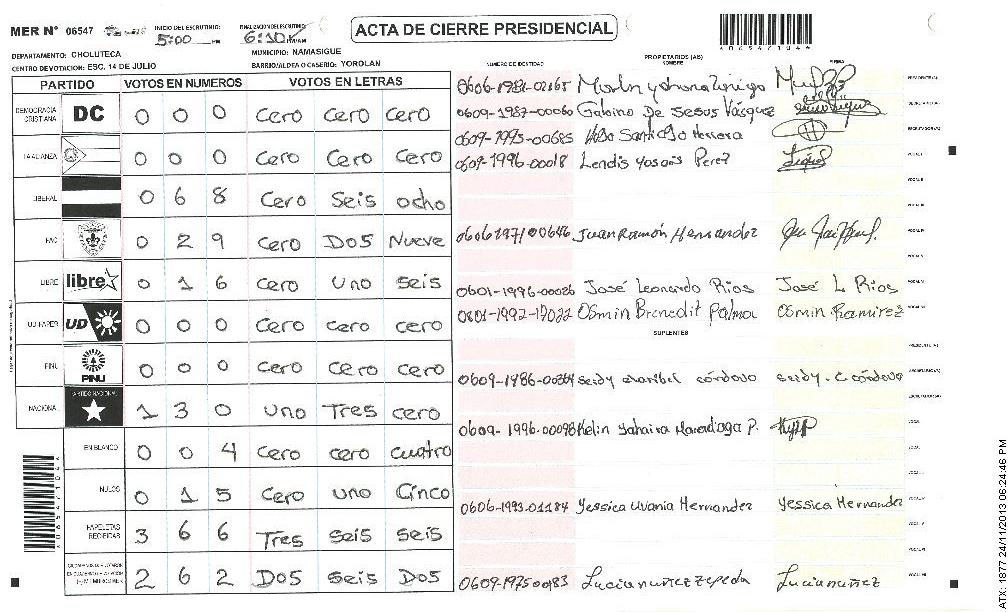 MER N° 06547
INICIO DEL ESCRUTINIO:
5:00 PM
FINALIZACION DEL ESCRUTINIO:
6:10
ACTA DE CIERRE PRESIDENCIAL
DEPARTAMENTO: CHOLUTECA
MUNICIPIO: NAMASIGUE
CENTRO DE VOTACION: ESC. 14 DE JULIO
BARRIO/ALDEA O CASERIO: YOROLAN
PARTIDO VOTOS EN NUMEROS VOTOS EN LETRAS
DEMOCRACIA CRISTIANA DC 0 0 0 Cero Cero Cero
LA ALIANZA 0 0 0 Cero Cero Cero
LIBERAL 0 6 8 Cero Seis ocho
PAC 0 2 9 Cero DOS Nueve
LIBRE libre 0 1 6 Cero uno seis
UD-FAPER UD 0 0 0 Cero cero cero
PINU PINU 0 0 0 Cero cero cero
NACIONAL PARTIDO NACIONAL 1 3 0 uno Tres cero
EN BLANCO 0 0 4 Cero cero cuatro
NULOS 0 1 5 Cero uno Cinco
PAPELETAS RECIBIDAS 3 6 6 Tres seis seis
2 6 2 DOS seis DOS
NUMERO DE IDENTIDAD
PROPIETARIOS (AS)
NOMBRE
FIRMA
0606-1981-02165
0609-1987-00060 Gabino De Jesus Vásquez
0609-1995-00685 Santiago Herrera
0609-1996-00018 Lendis Perez
0606 1971 00646 Juan Ramón Hernandez
0601-1996-00026 José Leonardo Rios José L Rios
0801-1992-17022 Osmin Palma Osmin Ramirez
SUPLENTES
0609-1986-00364 seidy maribel córdova seidy. C córdova
0609-1996-00098 Kelin Yahaira P.
0606-1993-01184 Yessica Uvania Hernandez Yessica Hernandez
0609-1975 00183 Lucia nuñez zepeda Lucia nuñez
ATX: 1877 24/11/2013 06:24:46 PM